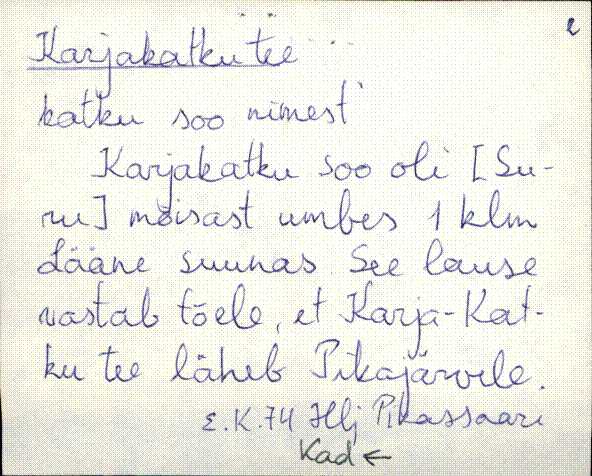 Karjakatku tee
katku soo nimest
Karjakatku soo oli [Su-
ru] mõisast umbes 1 klm
Lääne suunas See lause
vastab tõele, et Karja-Kat-
ku tee läheb Pikajärvele.
E.K.74 Hlj Pikassaare
Kad ←